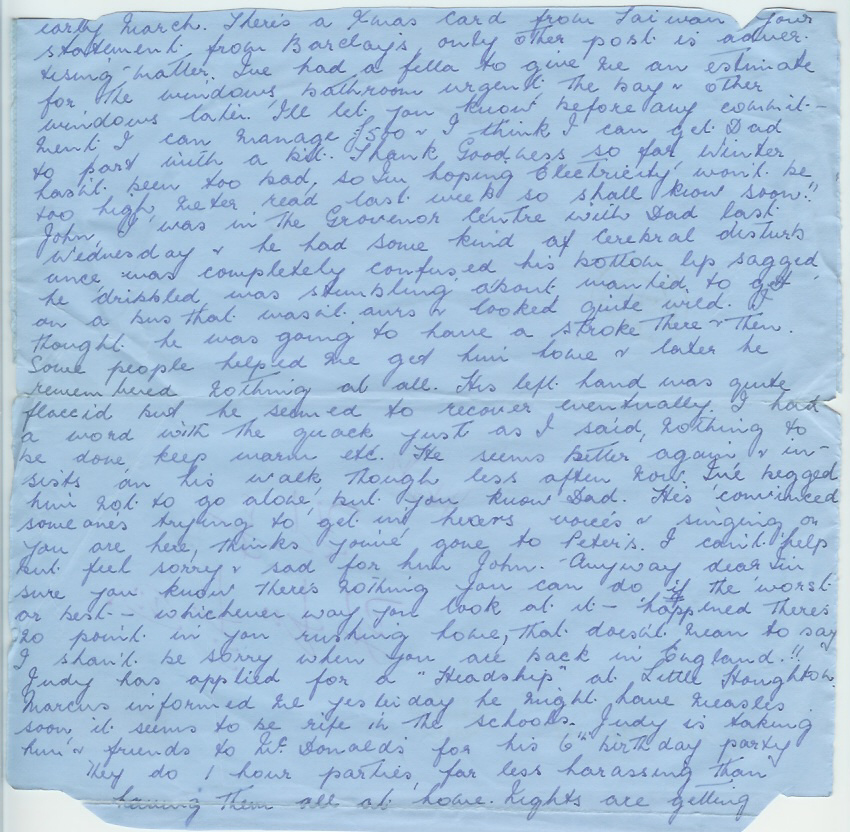 early March. There's a Xmas card from Taiwan your
statement from Barclays only other post is adver-
tising matter. I've had a fella to give me an estimate
for the windows, bathroom urgent the bay & other
windows later. I'll let you know before any commit-
ment I can manage £500 & I think I can get Dad
to part with a bit. Thank Goodness so far Winter
hasn't been too bad, so I'm hoping Electricity won't be
too high, meter read last week so shall know soon!!
John, I was in the Grovenor Centre with Dad last
Wednesday & he had some kind of cerebral disturb
ance was completely confused his bottom lip sagged
he dribbled was stumbling about wanted to get
on a bus that wasn't ours & looked quite wild. I
thought he was going to have a stroke There & Then.
Some people helped me get him home & later he
remembered nothing at all. His left hand was quite
flaccid but he seemed to recover eventually. I had
a word with the quack just as I said, nothing to
be done keep warm etc. He seems better again & in-
sists on his walk though less often now. I've begged
him not to go alone, but you know Dad. He's convinced
someone's trying to get in, hears voices & singing or
you are here, thinks you've gone to Peter's. I can't help
but feel sorry & sad for him John. Anyway dear I'm
sure you know there's nothing you can do if the worst
or best - whichever way you look at it - happened there's
no point in you rushing home, that doesn't mean to say
I shan't be sorry when you are back in England!!
Judy has applied for a "Headship" at Little Houghton.
Marcus informed me yesterday he might have measles
soon, it seems to be rife in the schools. Judy is taking
him & friends to Mc Donald's for his 6th birthday party
They do 1 hour parties, far less harassing than
having them all at home. Nights are getting